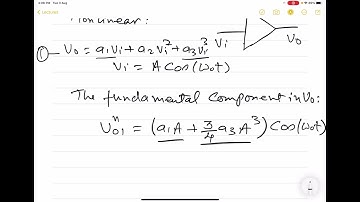 nonlinear:
① V₀ = a₁Vi + a₂Vi² + a₃Vi³
Vi
V₀
Vi = A Cos(ω₀t)
The fundamental component in V₀:
V₀₁ⁿ = (a₁A + 3/4 a₃A³) Cos(ω₀t)